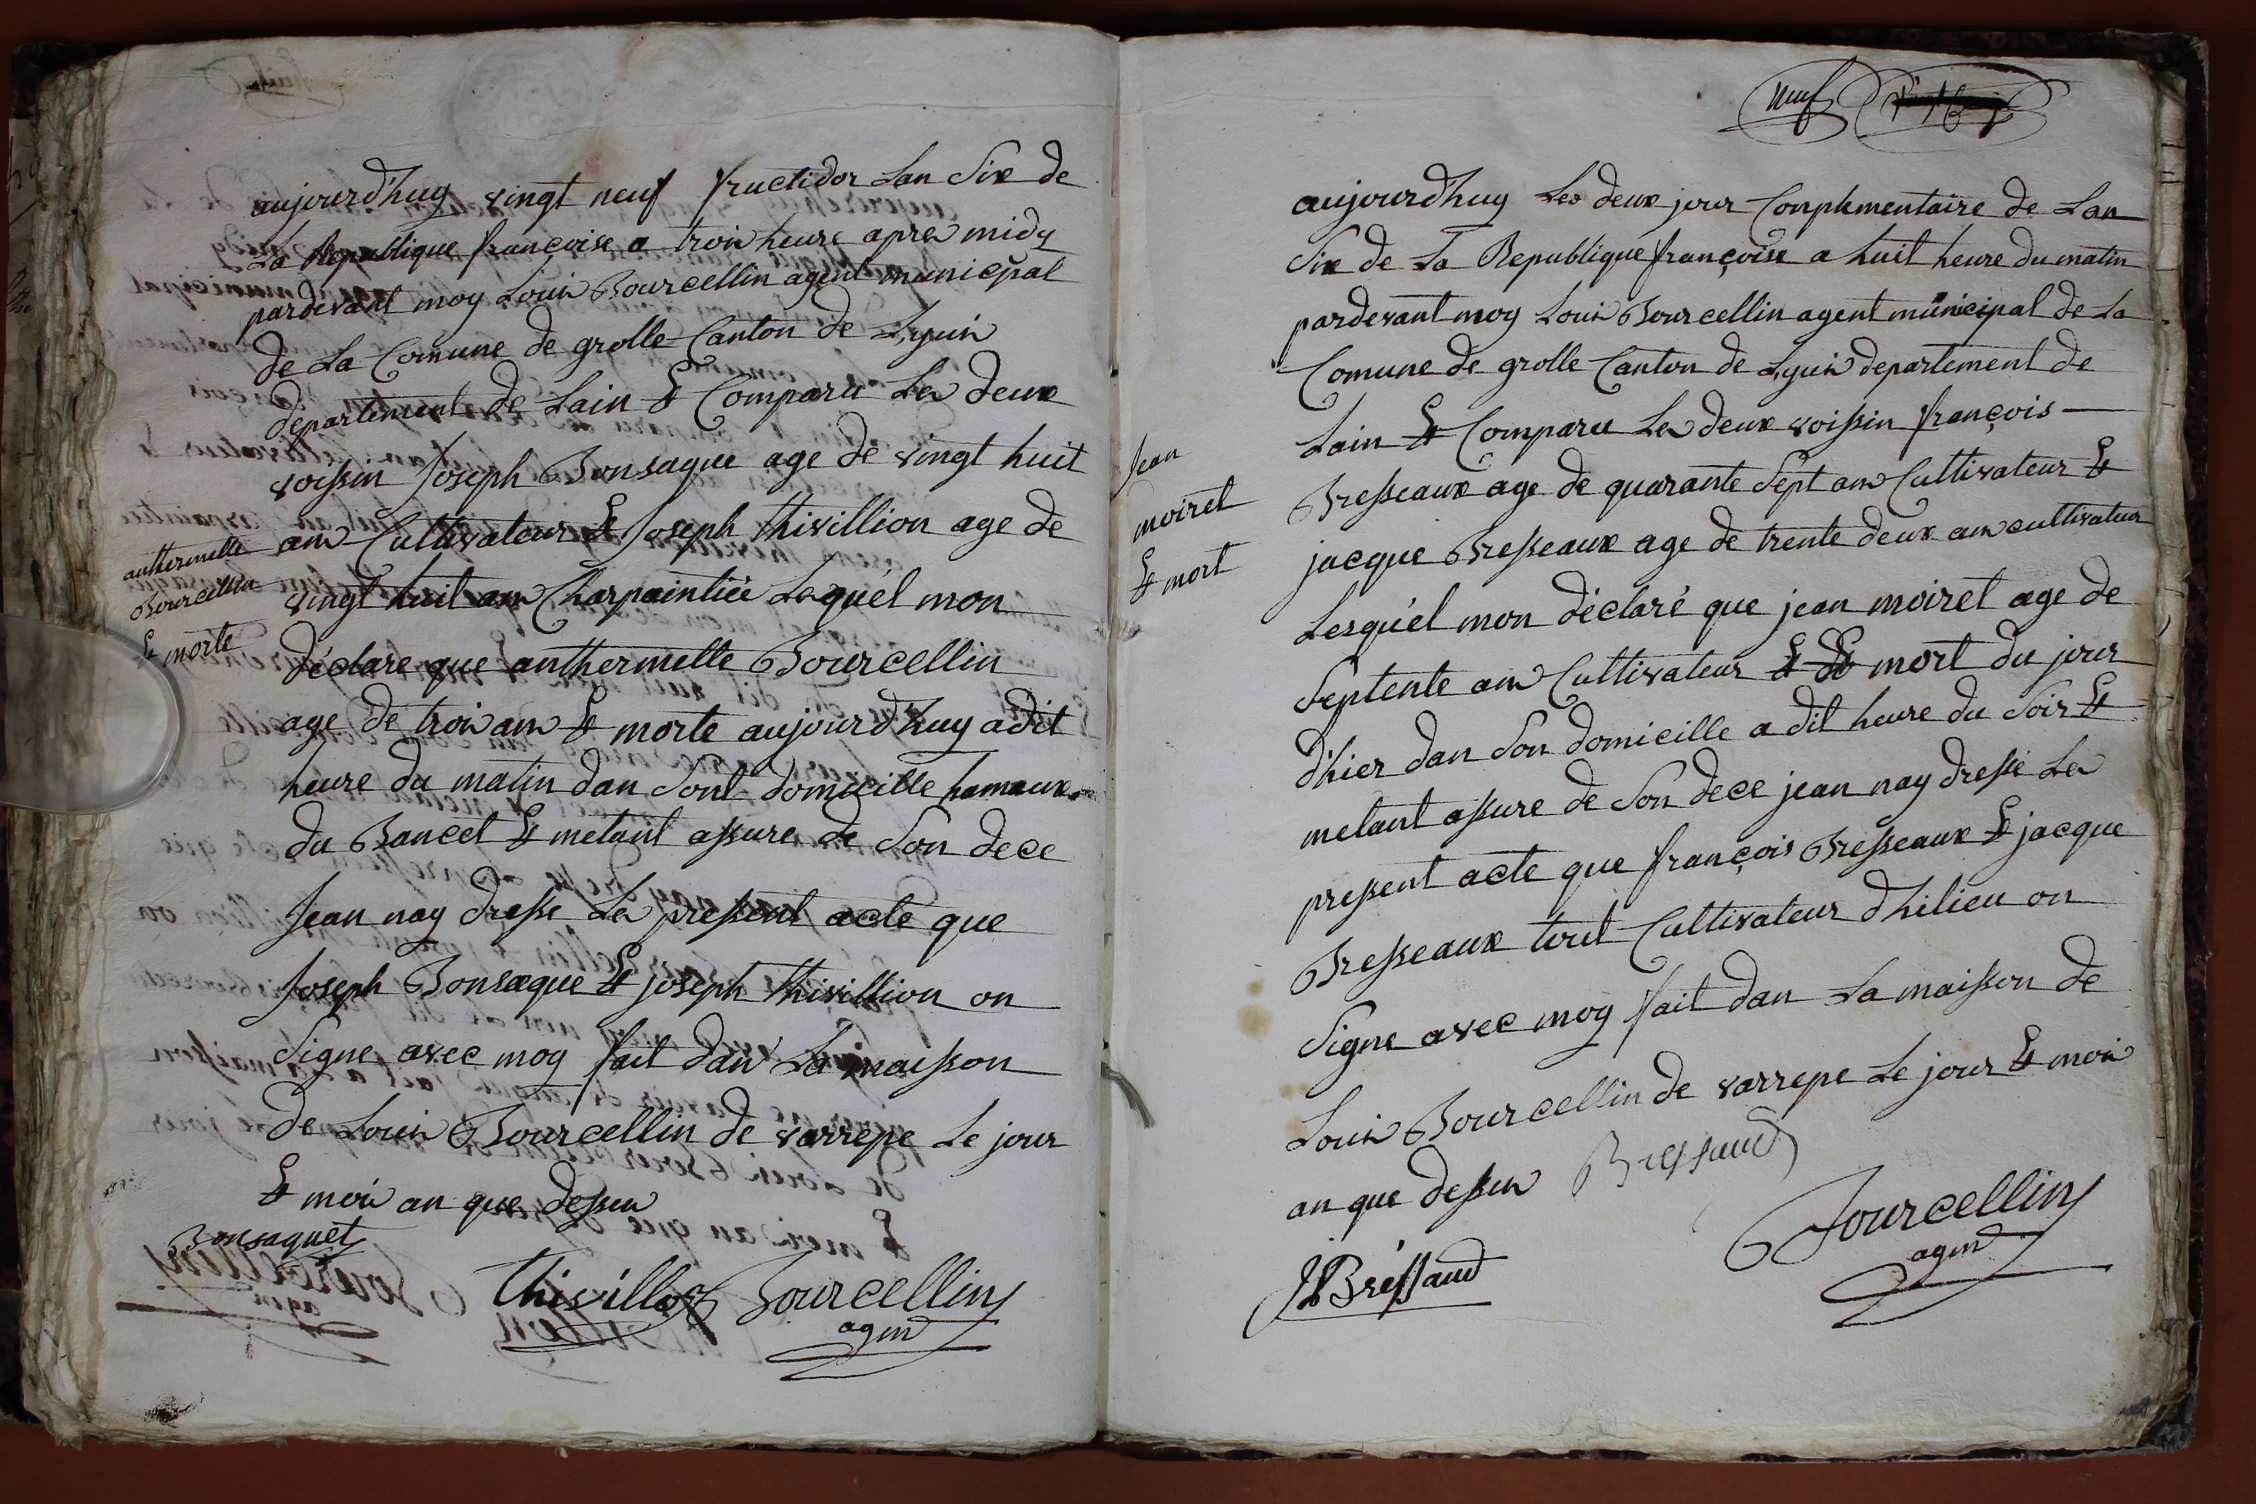 aujourd'huy vingt neuf fructidor Lan Six de
La Republique françoise a troix heure apres midy
pardevant moy Louis Bourcellin agent municipal
de La Comune de grolle Canton de Lyuis
departement de Lain Et Comparu Les deux
voissin Joseph Bonsaque age de vingt huit
ans Cultivateur Et Joseph thivillion age de
vingt huit ans Charpaintiée Lequél mon
déclare que anthermette Bourcellin
age de trois ans Et morte aujourdhuy a dit
heure du matin dan Sont domicille hameaux
du Bancet Et metant assure de Son dece
Jean nay dresse Les pressent acte que
Joseph Bonsaque Et joseph thivillion on
Signe avec moy fait dans La maisson
de Louis Bourcellin de varrepe Le jour
Et mois an que dessus
Bonsaquet
thivillon Bourcellin
agens
anthermette
Bourcellin
Et morte
neuf
aujourdhuy Les deux jour Complementaire de Lan
Six de La Republique françoise a huit heure du matin
pardevant moy Louis Bourcellin agent municipal de La
Comune de grolle Canton de Lyuis departement de
Lain Et Comparu Les deux voissin françois
Bresseaux age de quarante Sept ans Cultivateur Et
jacque Bresseaux age de trente deux ans cultivateur
Lesquél mon déclaré que jean moiret age de
Septente ans Cultivateur Et mort du jour
d'hier dan Son domicille a dit heure du Soir Et
metant assure de Son dece jean nay dresse Les
pressent acte que françois Bresseaux Et jacque
Bresseaux tout Cultivateur d'hilieu on
Signe avec moy fait dan La maisson de
Louis Bourcellin de varrepe Le jour Et mois
an que dessus Bressaud
JBréssaud
Bourcellin
agens
Jean
moiret
Et mort